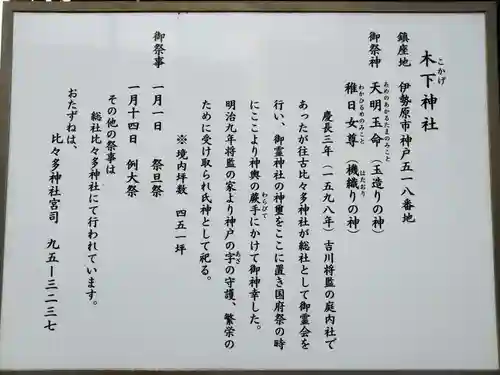 木下神社
こかげ
鎮座地 伊勢原市神戸五一八番地
御祭神 天明玉命(玉造りの神)
あめのあかるたまのみこと
稚日女尊(機織りの神)
わかひるめのみこと はたおり
慶長三年(一五九八年)吉川将監の庭内社で
あったが往古比々多神社が総社として御霊会を
行い、御霊神社の神璽をここに置き国府祭の時
にここより神輿の蕨手にかけて御神幸した。
わらびて
明治九年将監の家より神戸の字の守護、繁栄の
あざ
ために受け取られ氏神として祀る。
※境内坪数 四五一坪
御祭事 一月一日 祭旦祭
一月十四日 例大祭
その他の祭事は
総社比々多神社にて行われています。
おたずねは、
比々多神社宮司 九五ー三二三七